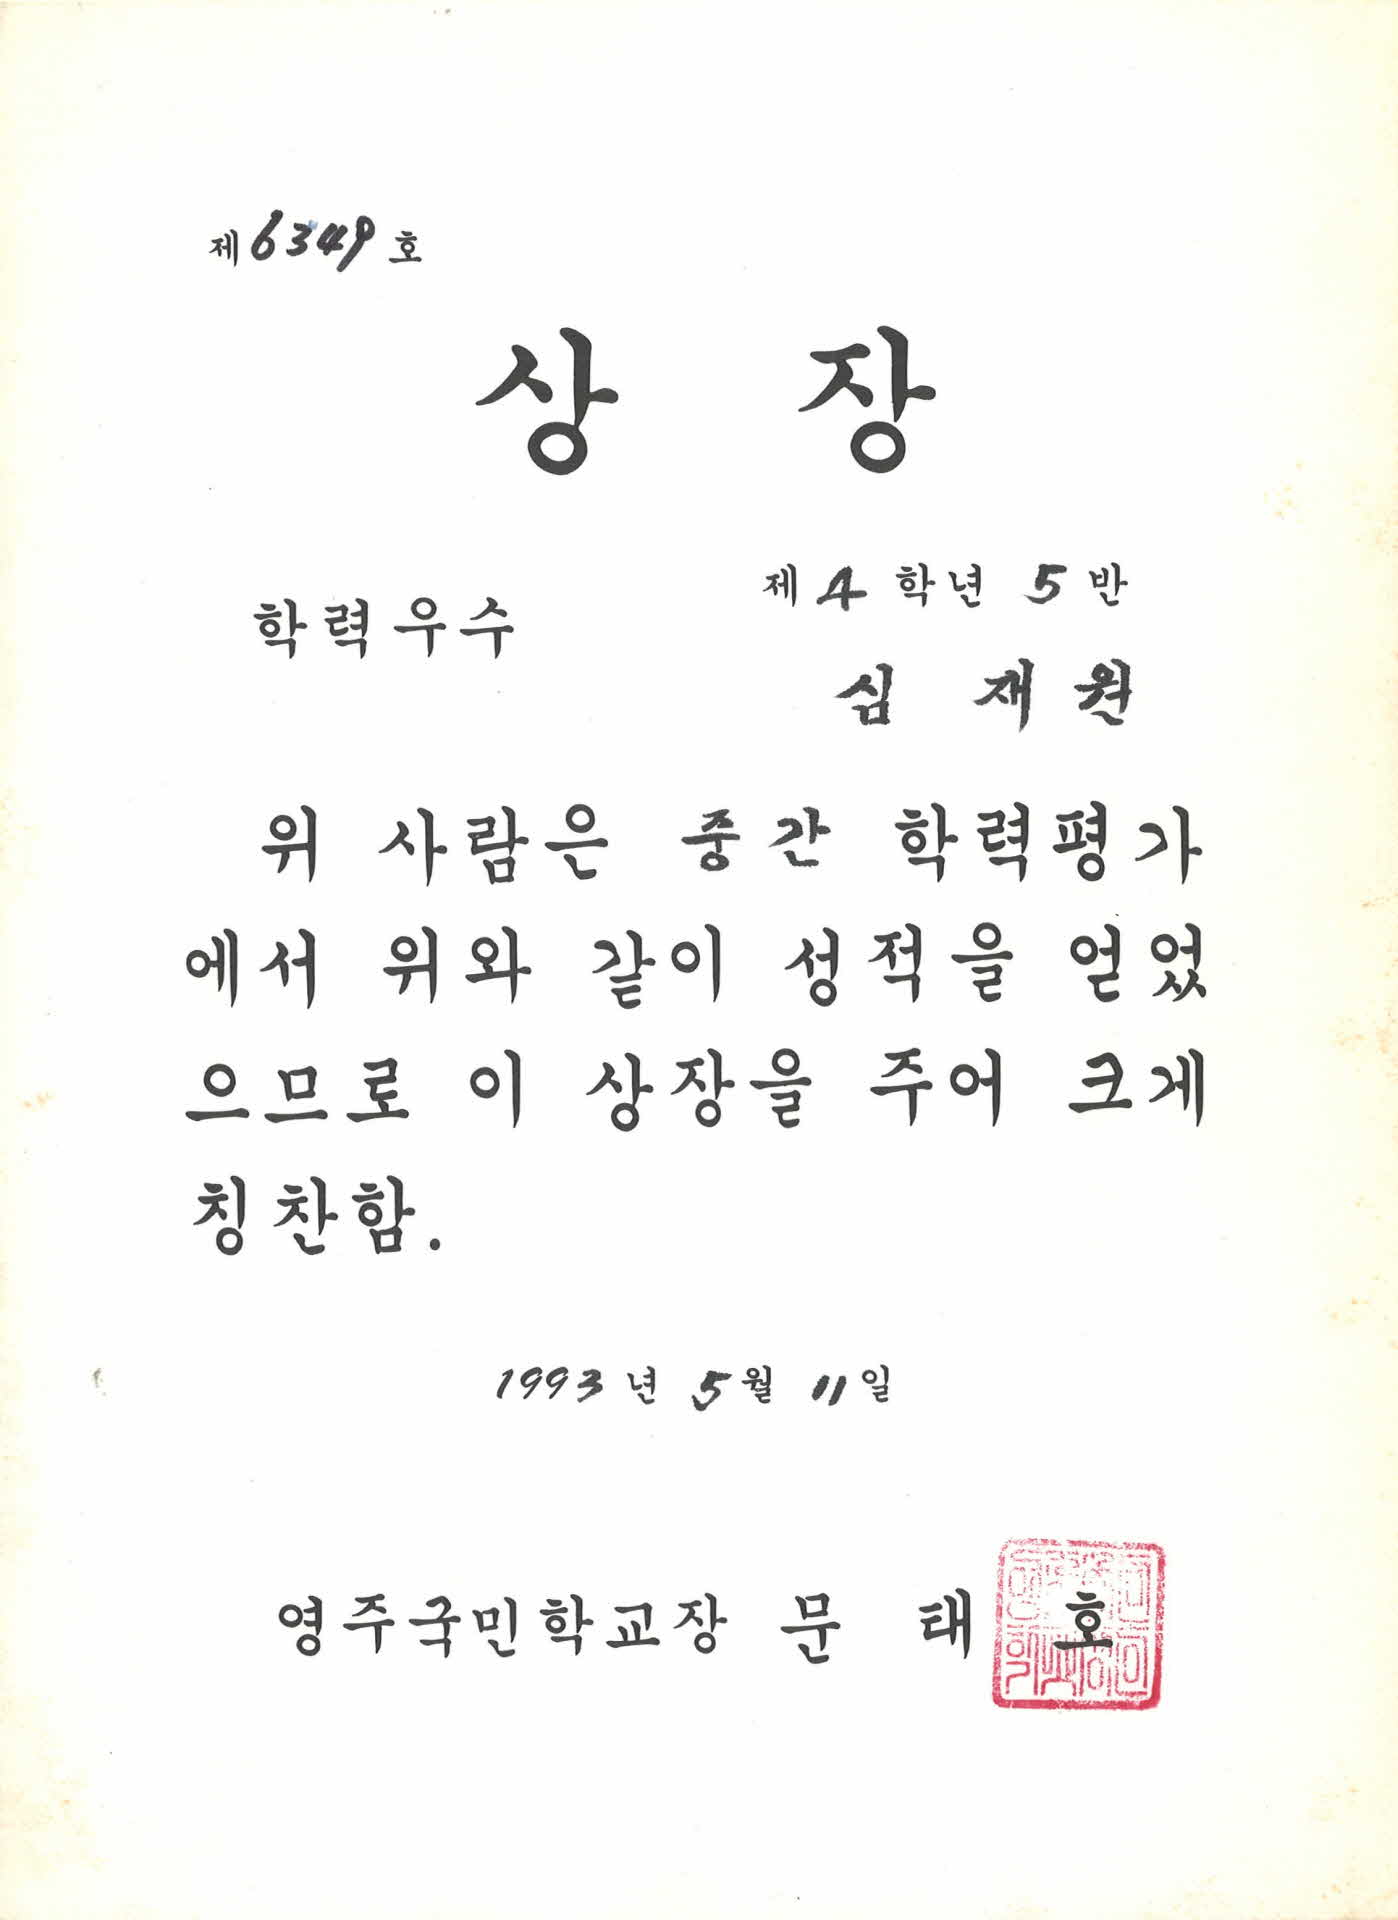 제 6349 호
상 장
제 4 학년 5 반
학력우수
심 재 원
위 사람은 중간 학력평가
에서 위와 같이 성적을 얻었
으므로 이 상장을 주어 크게
칭찬함.
1993 년 5 월 11 일
영주국민학교장 문 태 호